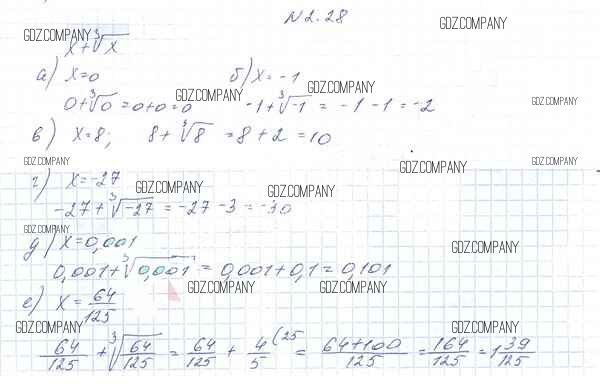 N 2.28
GDZ.COMPANY
GDZ.COMPANY
x + ∛x
а) x = 0 б) x = -1
GDZ.COMPANY
GDZ.COMPANY
GDZ.COMPANY
0 + ∛0 = 0 + 0 = 0 -1 + ∛-1 = -1 - 1 = -2
в) x = 8; 8 + ∛8 = 8 + 2 = 10
GDZ.COMPANY
GDZ.COMPANY
GDZ.COMPANY
г) x = -27
GDZ.COMPANY
GDZ.COMPANY
-27 + ∛-27 = -27 - 3 = -30
GDZ.COMPANY
д) x = 0,001
GDZ.COMPANY
0,001 + ∛0,001 = 0,001 + 0,1 = 0,101
GDZ.COMPANY
GDZ.COMPANY
е) x = 64/125
GDZ.COMPANY
GDZ.COMPANY
64/125 + ∛64/125 = 64/125 + 4/5 (25 = 64+100/125 = 164/125 = 1 39/125